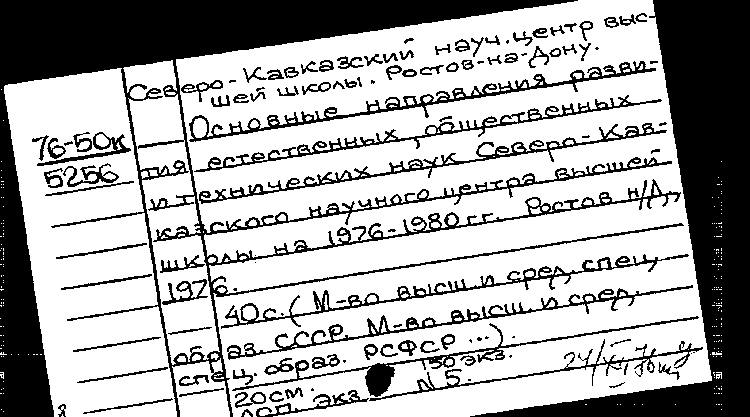 Северо-Кавказский науч. центр выс-
шей школы. Ростов-на-Дону.
76-50к
5256
Основные направления разви-
тия естественных, общественных
и технических наук Северо-Кав-
казского научного центра высшей
школы на 1976-1980 гг. Ростов н/Д.,
1976.
40с. (М-во высш и сред. спец.
образ. СССР. М-во высш. и сред.
спец. образ. РСФСР ...).
20см. 150 экз.
доп. экз. N 5.
24/XI